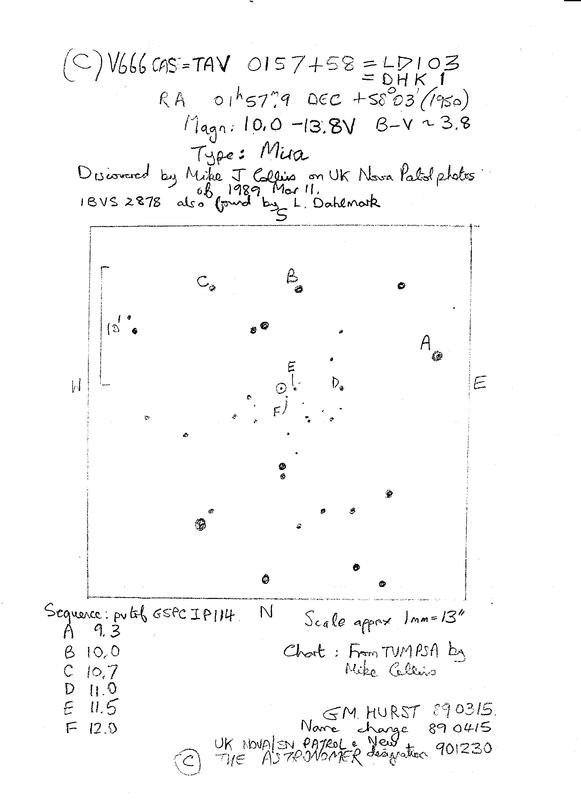 (C) V666 CAS = TAV 0157+58 = LD103
= DHK 1
RA 01h57m.9 DEC +58°03' (1950)
Magn: 10.0 - 13.8V B-V ~ 3.8
Type: Mira
Discovered by Mike J Collins on UK Nova Patrol photos
of 1989 Mar 11.
IBVS 2878 also found by L. Dahlmark
S
C
B
10'
A
W
E
D
E
F
N
Sequence: pv GSPC IP114
A 9.3
B 10.0
C 10.7
D 11.0
E 11.5
F 12.0
Scale approx 1mm = 13"
Chart: From TVMPSA by
Mike Collins
GM. HURST 890315.
Name change 890415
UK NOVA/SN PATROL & New designation 901230
(C) THE ASTRONOMER